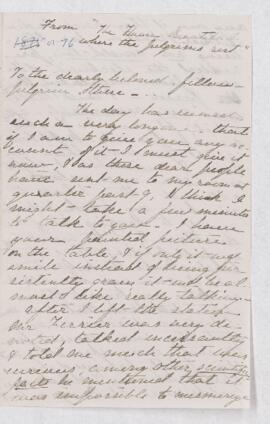 From "The House Beautiful
1875 or 76 where the pilgrims rest"
To the dearly beloved fellow-
pilgrim there -..
The day has
such a very long one that
if I am to give you any ac-
count of it I must give it
now, & as these dear people
have sent me to my room at
quarter past 9, I think I
might take a few minutes
to talk to you. I have
your painted picture
on the table, & if only it wd
smile instead of being per-
sistently grave it wd be al-
most like really talking.
After I left the station
Mr Terrier was very de-
voted, talked incessantly
& told me much that was
curious, among other scientific
facts he mentioned that it
was impossible to mesmerize